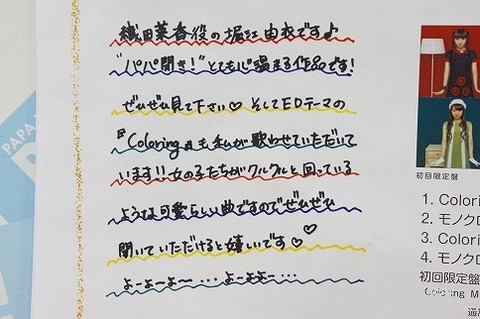 織田莱香役の堀江由衣です♪
"パパ聞き！"とても心温まる作品です！
ぜひぜひ見て下さい♡ そしてEDテーマの
『Coloring』も私が歌わせていただいて
います!! 女の子たちがクルクルと回っている
ような可愛らしい曲ですのでぜひぜひ
聞いていただけると嬉しいです♡♡
よーよーよ〜 … よーよよー …
PAPA
初回限定盤
1. Colori
2. モノクロ
3. Colori
4. モノクロ
初回限定盤
Coloring M